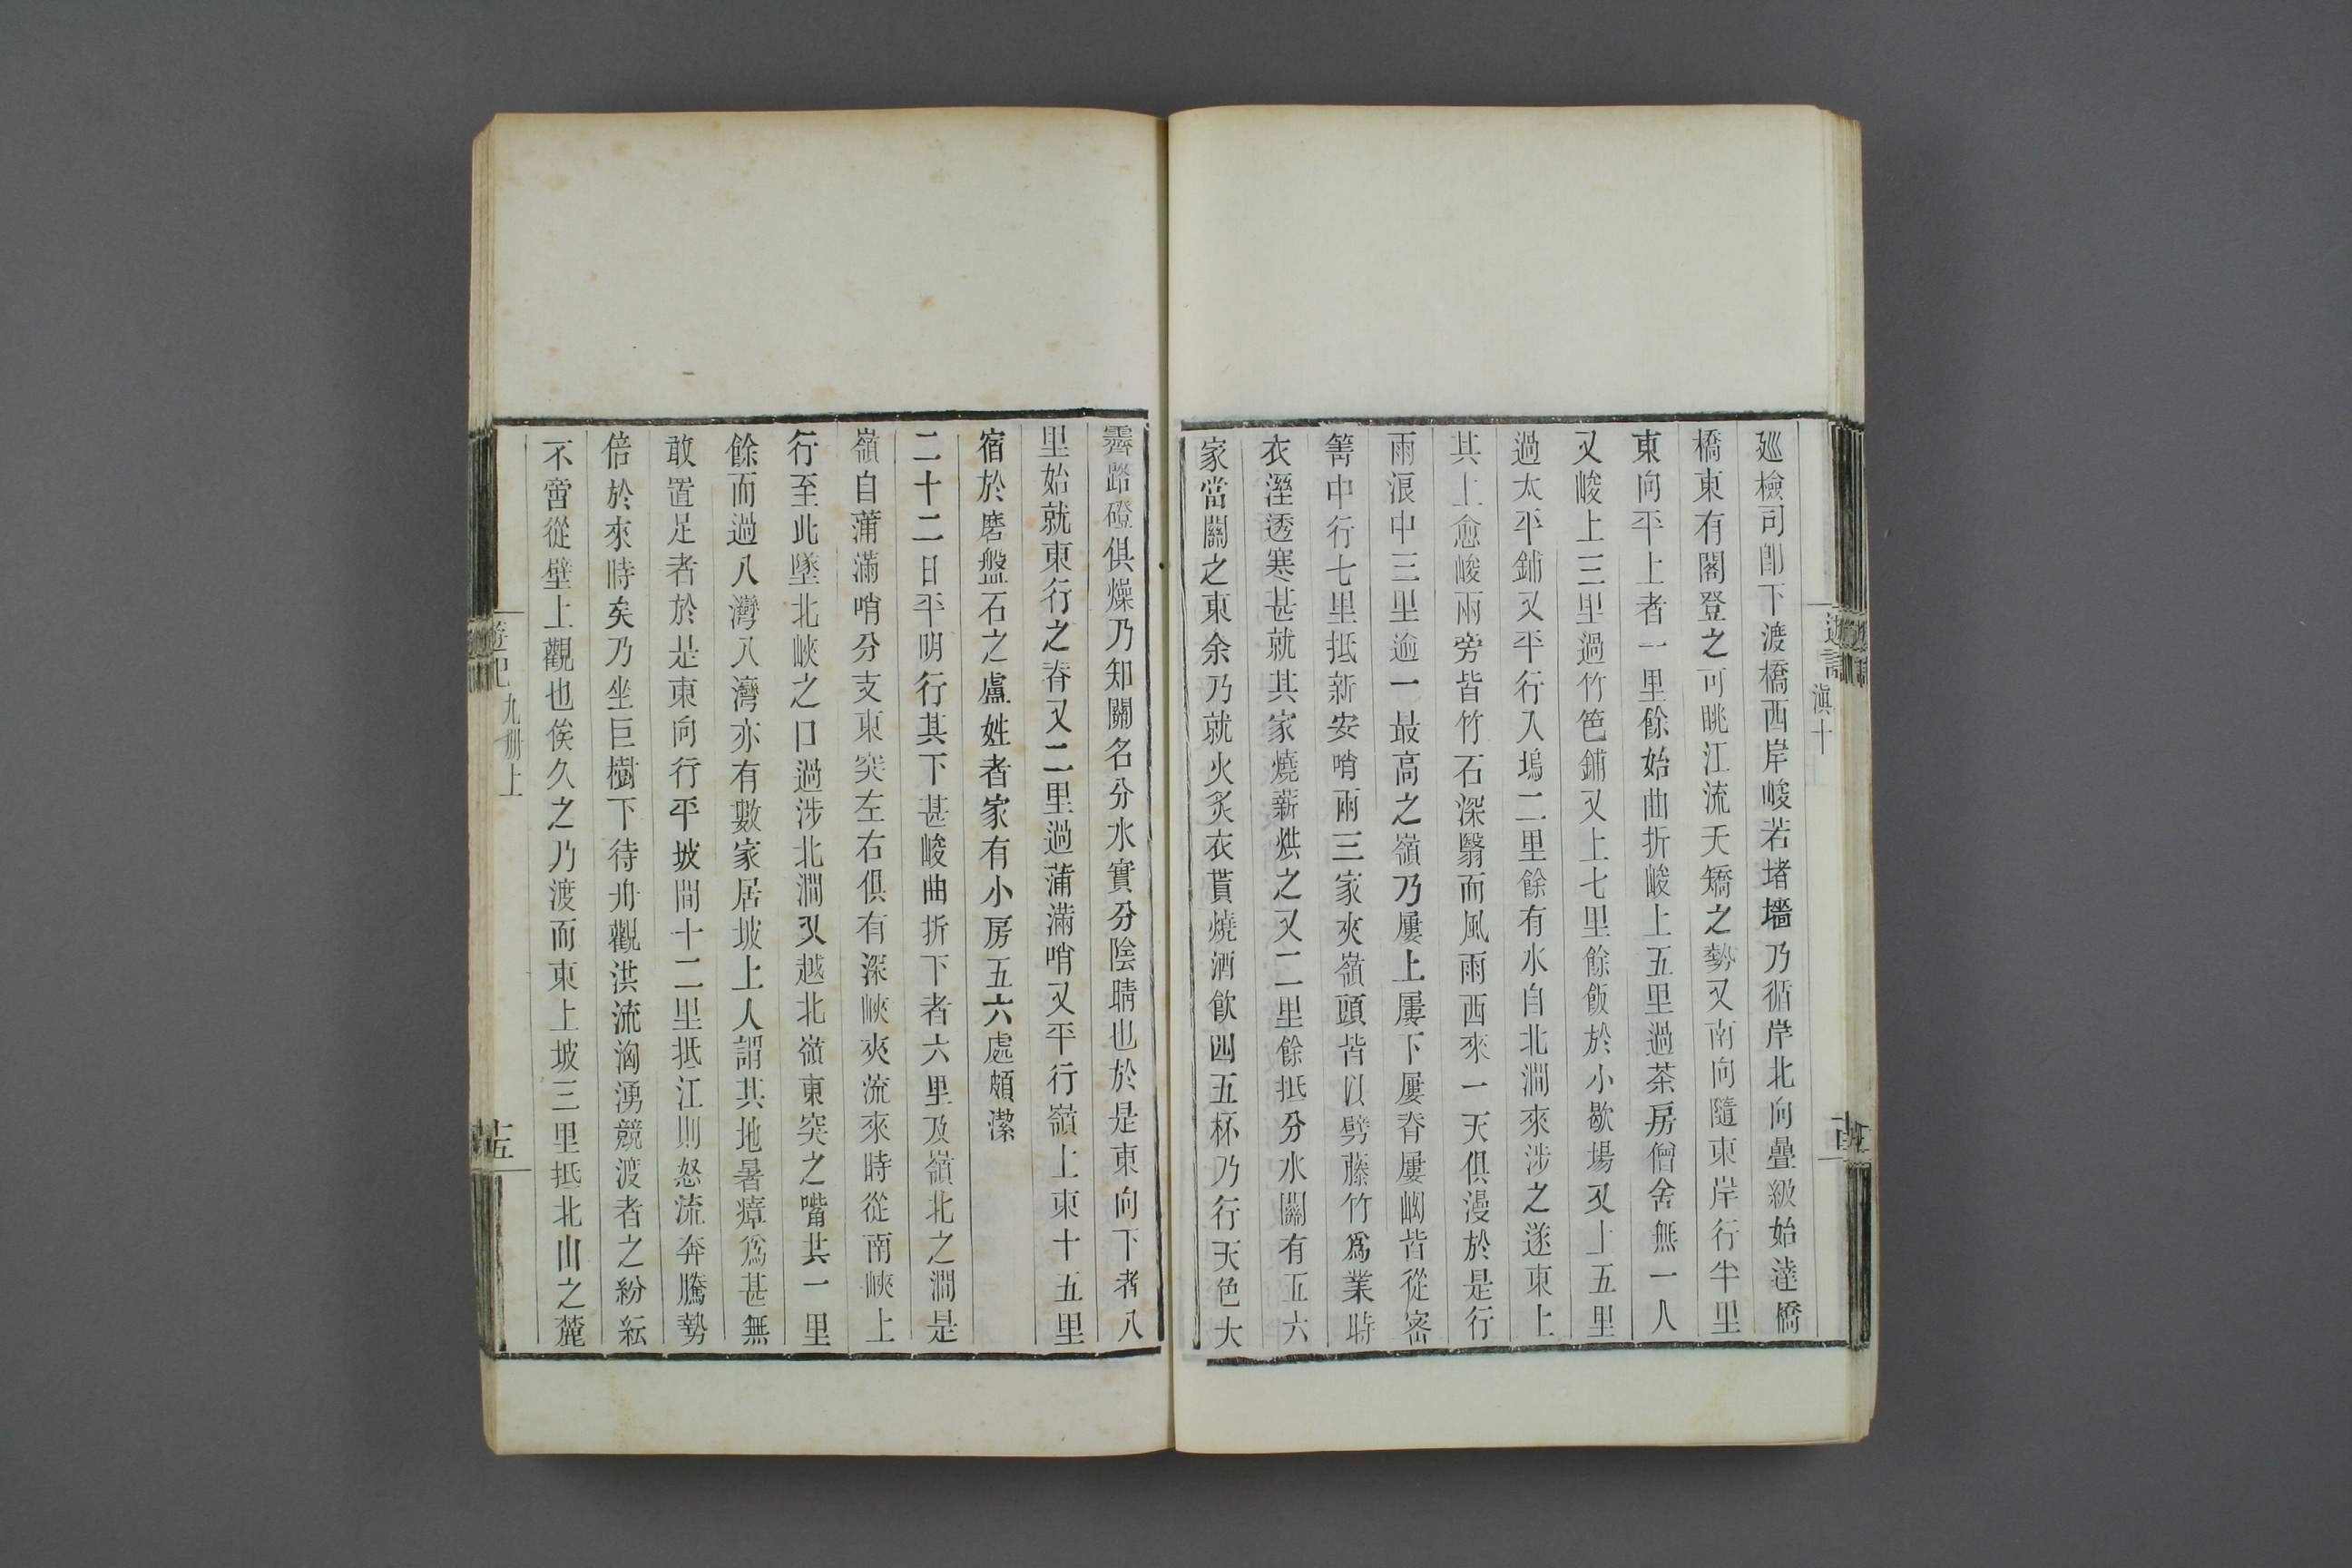 遊記
滇十
廵檢司卽下渡橋西岸峻若堵墻乃循岸北向疊級始達橋
橋東有閣登之可眺江流夭矯之勢又南向隨東岸行半里
東向平上者一里餘始曲折峻上五里過茶房僧舍無一人
又峻上三里過竹笆鋪又上七里餘飯於小歇場又上五里
過太平鋪又平行入塢二里餘有水自北澗來涉之遂東上
其上愈峻兩旁皆竹石深翳而風雨西來一天俱漫於是行
雨浪中三里逾一最高之嶺乃屢上屢下屢脊屢崡皆從密
箐中行七里抵新安哨兩三家夾嶺頭皆以劈藤竹爲業時
衣溼透寒甚就其家燒薪烘之又二里餘抵分水關有五六
家當關之東余乃就火炙衣貰燒酒飲四五杯乃行天色大
霽路磴俱燥乃知關名分水實分陰晴也於是東向下者八
里始就東行之脊又二里過蒲滿哨又平行嶺上東十五里
宿於磨盤石之盧姓者家有小房五六處頗潔
二十二日平明行其下甚峻曲折下者六里及嶺北之澗是
嶺自蒲滿哨分支東突左右俱有深峽夾流來時從南峽上
行至此墜北峽之口過涉北澗又越北嶺東突之嘴共一里
餘而過八灣八灣亦有數家居坡上人謂其地暑瘴爲甚無
敢置足者於是東向行平坡間十二里抵江則怒流奔騰勢
倍於來時矣乃坐巨樹下待舟觀洪流洶湧競渡者之紛紜
不啻從壁上觀也俟久之乃渡而東上坡三里抵北山之麓
遊記
九冊上
十五